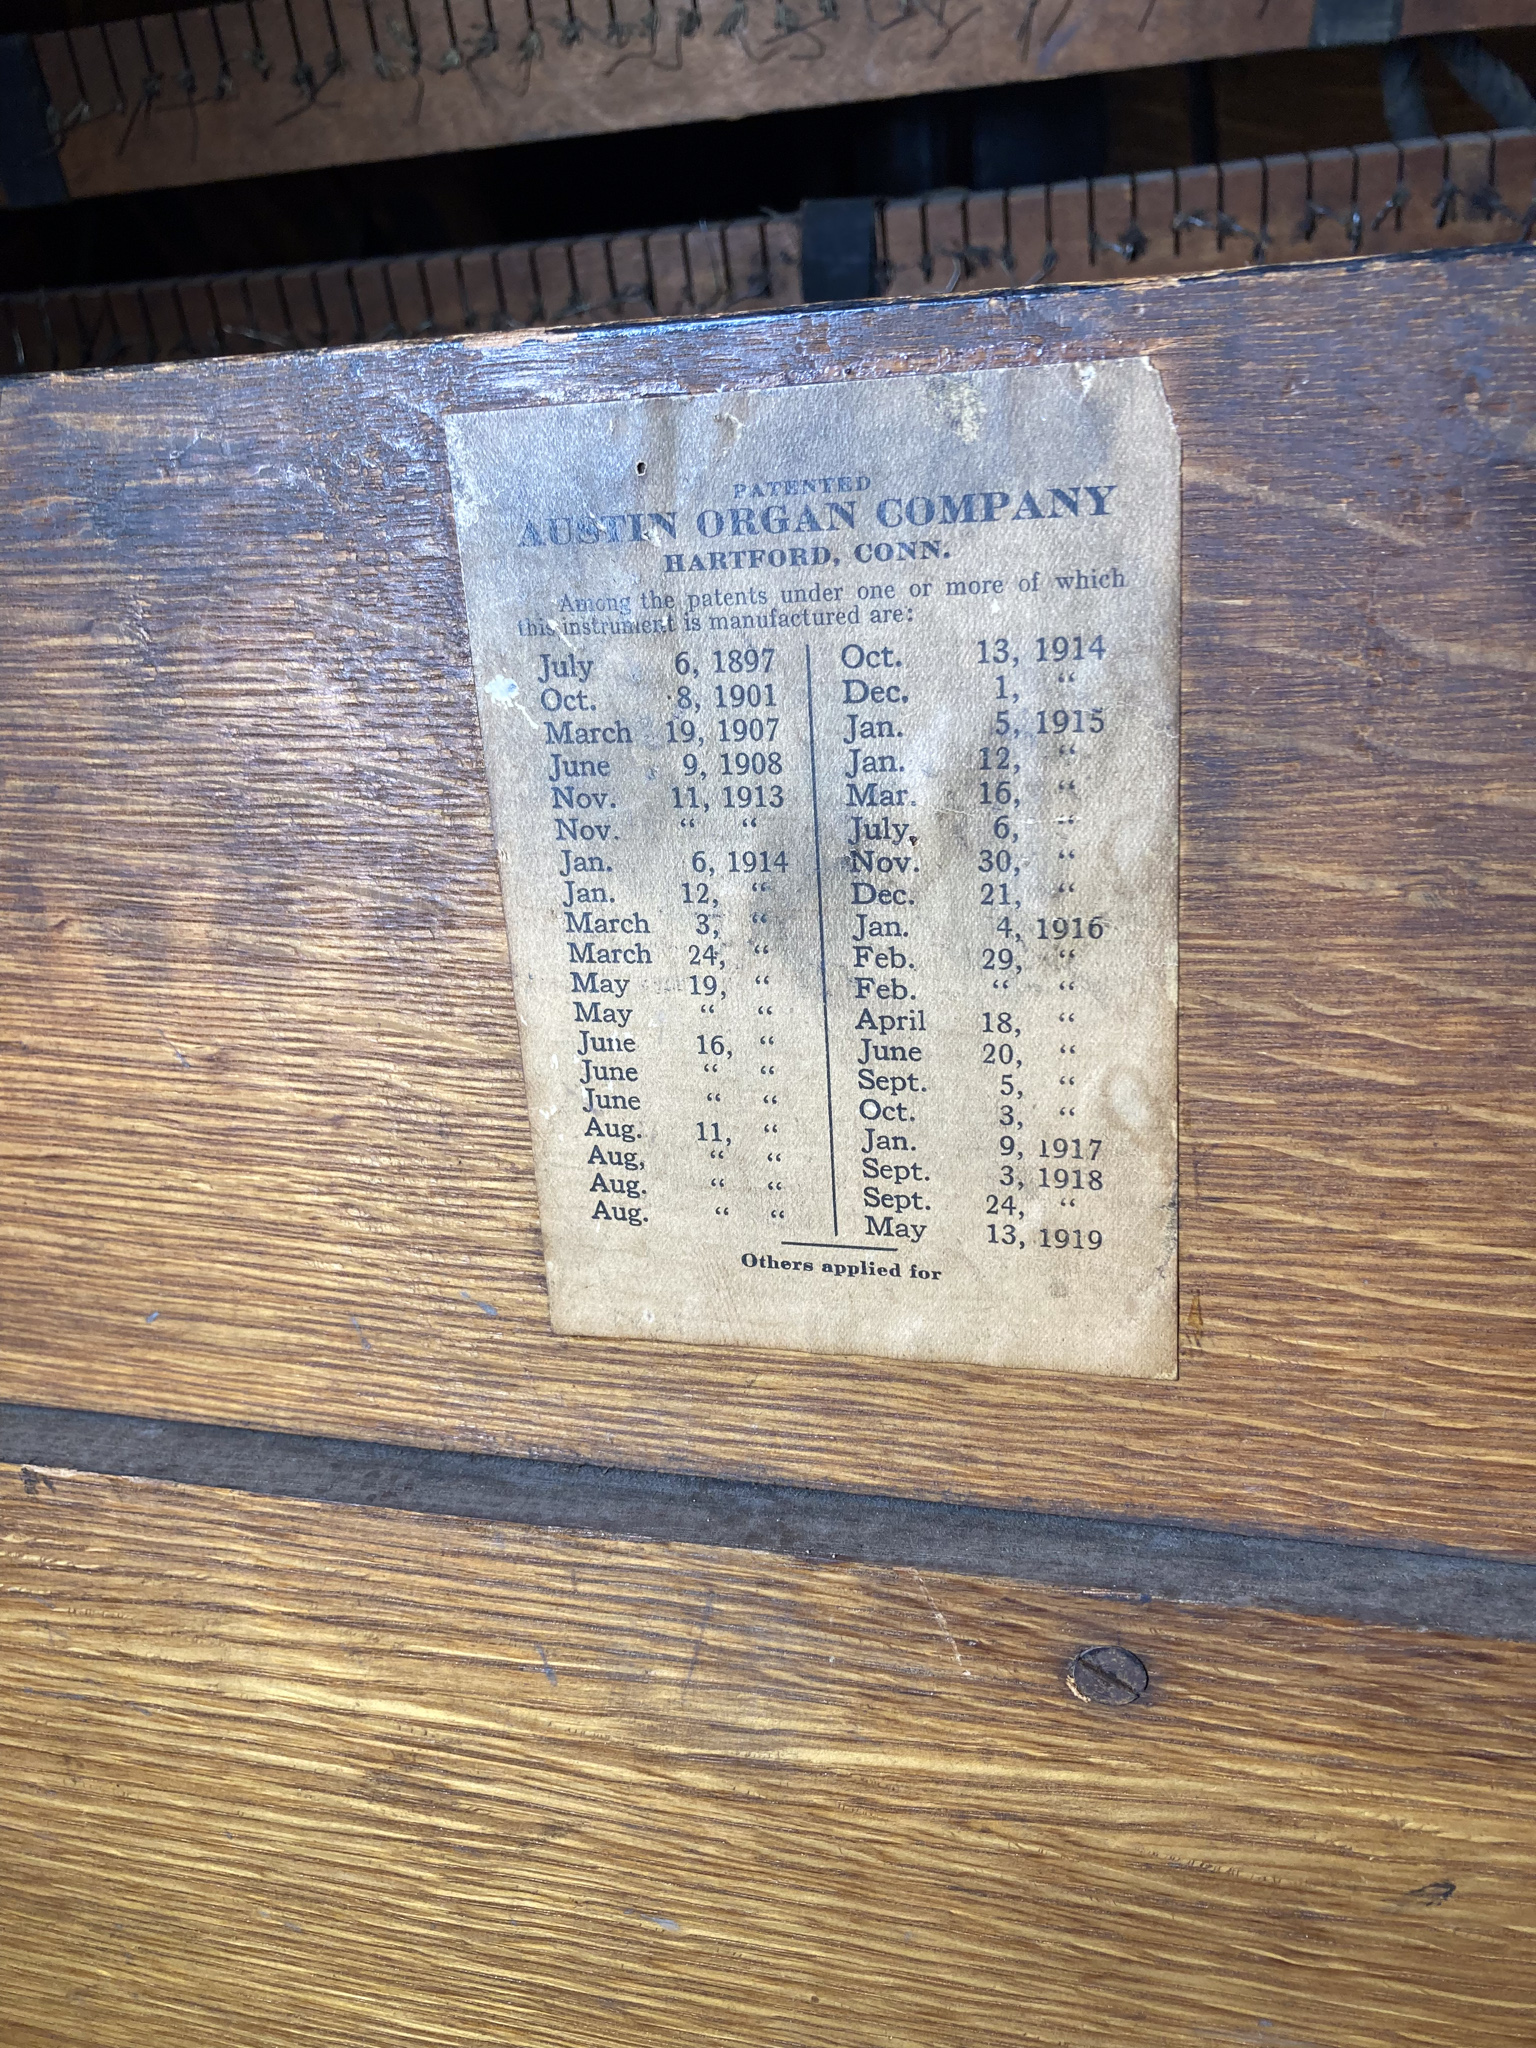 PATENTED
AUSTIN ORGAN COMPANY
HARTFORD, CONN.
Among the patents under one or more of which
this instrument is manufactured are:
July 6, 1897
Oct. 8, 1901
March 19, 1907
June 9, 1908
Nov. 11, 1913
Nov. “ “
Jan. 6, 1914
Jan. 12, “
March 3, “
March 24, “
May 19, “
May “ “
June 16, “
June “ “
June “ “
Aug. 11, “
Aug, “ “
Aug. “ “
Aug. “ “
Oct. 13, 1914
Dec. 1, “
Jan. 5, 1915
Jan. 12, “
Mar. 16, “
July, 6, “
Nov. 30, “
Dec. 21, “
Jan. 4, 1916
Feb. 29, “
Feb. “ “
April 18, “
June 20, “
Sept. 5, “
Oct. 3, “
Jan. 9, 1917
Sept. 3, 1918
Sept. 24, “
May 13, 1919
Others applied for